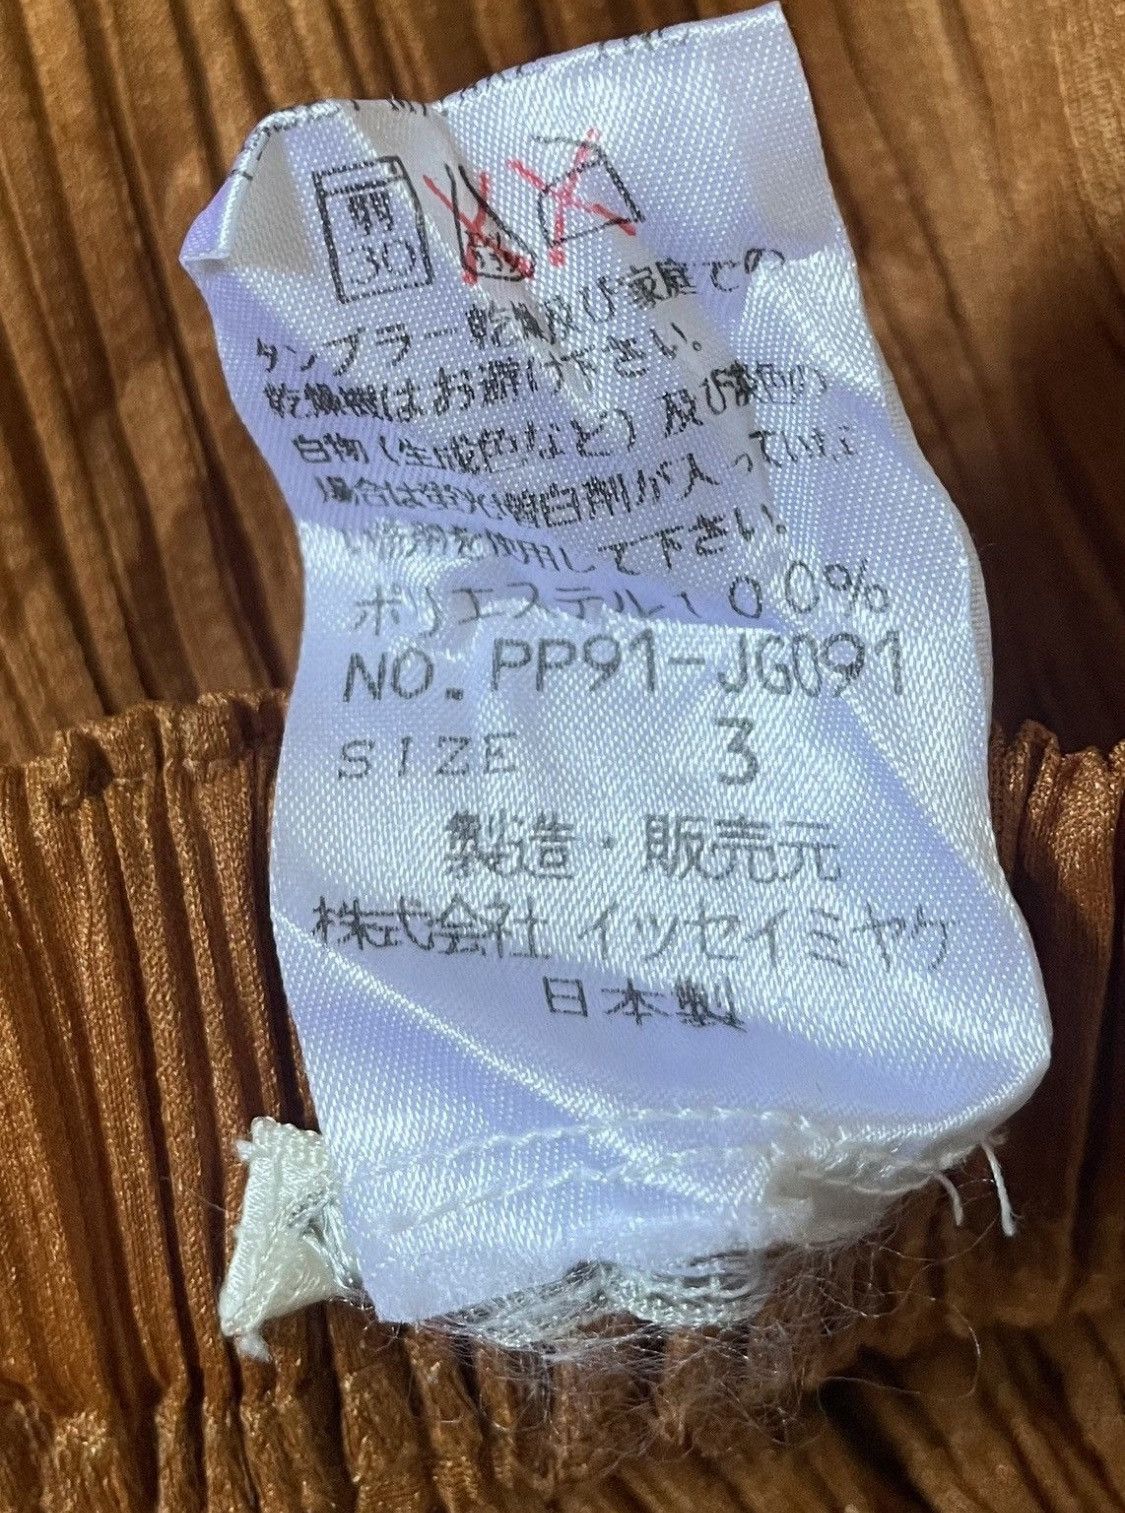 弱
30
タンブラー乾燥及び家庭での
乾燥機はお避け下さい。
白物(生成色など)及び淡色の
場合は蛍光増白剤が入っていな
い洗剤を使用して下さい。
ポリエステル100%
NO. PP91-JG091
SIZE 3
製造・販売元
株式会社 イッセイミヤケ
日本製